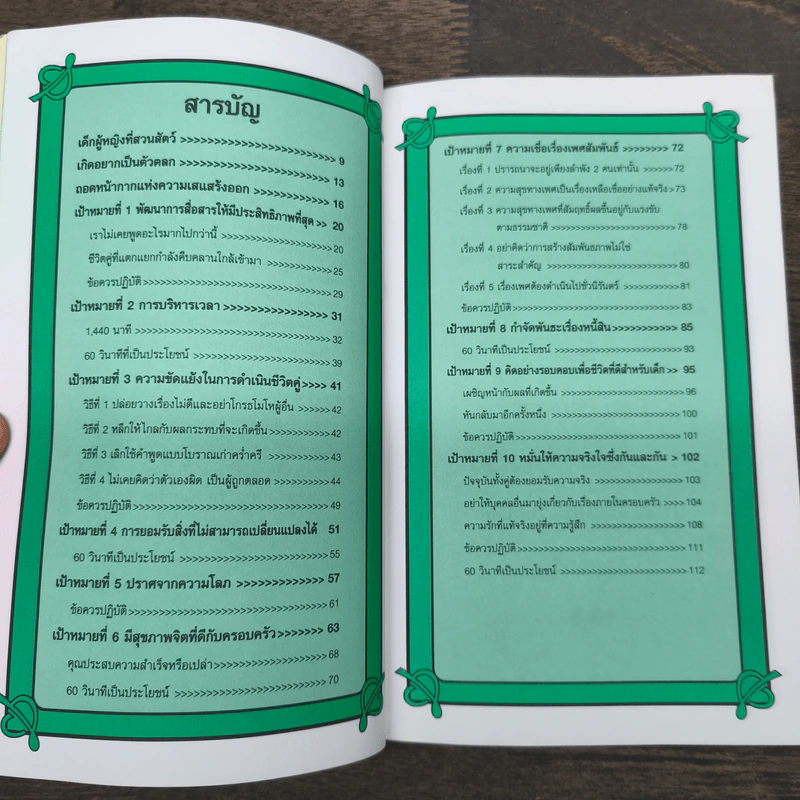 สารบัญ
เด็กผู้หญิงที่สวนสัตว์ >>>>>>>>>>>>>>>>>>>>>>>>>> 9
เกิดอยากเป็นตัวตลก >>>>>>>>>>>>>>>>>>>>>>>>> 13
ถอดหน้ากากแห่งความเสแสร้งออก >>>>>>>>>>>>> 16
เป้าหมายที่ 1 พัฒนาการสื่อสารให้มีประสิทธิภาพที่สุด >> 20
เราไม่เคยพูดอะไรมากไปกว่านี้ >>>>>>>>>>>>>>>>>>>20
ชีวิตคู่ที่แตกแยกกำลังคืบคลานใกล้เข้ามา >>>>>>>>>>>> 25
ข้อควรปฏิบัติ >>>>>>>>>>>>>>>>>>>>>>>>>>>>>>29
เป้าหมายที่ 2 การบริหารเวลา >>>>>>>>>>>>>>>>>> 31
1,440 นาที >>>>>>>>>>>>>>>>>>>>>>>>>>>>>>> 32
60 วินาทีที่เป็นประโยชน์ >>>>>>>>>>>>>>>>>>>>>>> 39
เป้าหมายที่ 3 ความขัดแย้งในการดำเนินชีวิตคู่ >>>> 41
วิธีที่ 1 ปล่อยวางเรื่องไม่ดีและอย่าโกรธโมโหผู้อื่น >>>>>> 42
วิธีที่ 2 หลีกให้ไกลกับผลกระทบที่จะเกิดขึ้น >>>>>>>>>>> 42
วิธีที่ 3 เลิกใช้คำพูดแบบโบราณเก่าคร่ำครึ >>>>>>>>>>> 43
วิธีที่ 4 ไม่เคยคิดว่าตัวเองผิด เป็นผู้ถูกตลอด >>>>>>>>>> 44
ข้อควรปฏิบัติ >>>>>>>>>>>>>>>>>>>>>>>>>>>>>> 49
เป้าหมายที่ 4 การยอมรับสิ่งที่ไม่สามารถเปลี่ยนแปลงได้ 51
60 วินาทีเป็นประโยชน์ >>>>>>>>>>>>>>>>>>>>>>>>> 55
เป้าหมายที่ 5 ปราศจากความโลภ >>>>>>>>>>>>> 57
ข้อควรปฏิบัติ >>>>>>>>>>>>>>>>>>>>>>>>>>>>>> 61
เป้าหมายที่ 6 มีสุขภาพจิตที่ดีกับครอบครัว >>>>>>> 63
คุณประสบความสำเร็จหรือเปล่า >>>>>>>>>>>>>>>>>>> 68
60 วินาทีเป็นประโยชน์ >>>>>>>>>>>>>>>>>>>>>>>> 70
เป้าหมายที่ 7 ความเชื่อเรื่องเพศสัมพันธ์ >>>>>>>> 72
เรื่องที่ 1 ปรารถนาจะอยู่เพียงลำพัง 2 คนเท่านั้น >>>>>>> 72
เรื่องที่ 2 ความสุขทางเพศเป็นเรื่องเหลือเชื่ออย่างแท้จริง > 73
เรื่องที่ 3 ความสุขทางเพศที่สัมฤทธิ์ผลขึ้นอยู่กับแรงขับ
ตามธรรมชาติ >>>>>>>>>>>>>>>>>>>>>> 78
เรื่องที่ 4 อย่าคิดว่าการสร้างสัมพันธภาพไม่ใช่
สาระสำคัญ >>>>>>>>>>>>>>>>>>>>>>>> 80
เรื่องที่ 5 เรื่องเพศต้องดำเนินไปชั่วนิรันดร์ >>>>>>>>>> 81
ข้อควรปฏิบัติ >>>>>>>>>>>>>>>>>>>>>>>>>>>>> 83
เป้าหมายที่ 8 กำจัดพันธะเรื่องหนี้สิน >>>>>>>>>>> 85
60 วินาทีเป็นประโยชน์ >>>>>>>>>>>>>>>>>>>>>>> 93
เป้าหมายที่ 9 คิดอย่างรอบคอบเพื่อชีวิตที่ดีสำหรับเด็ก > 95
เผชิญหน้ากับผลที่เกิดขึ้น >>>>>>>>>>>>>>>>>>>>> 96
หันกลับมาอีกครั้งหนึ่ง >>>>>>>>>>>>>>>>>>>>>>> 100
ข้อควรปฏิบัติ >>>>>>>>>>>>>>>>>>>>>>>>>>>>> 101
เป้าหมายที่ 10 หมั่นให้ความจริงใจซึ่งกันและกัน > 102
ปัจจุบันทั้งคู่ต้องยอมรับความจริง >>>>>>>>>>>>>>>> 103
อย่าให้บุคคลอื่นมายุ่งเกี่ยวกับเรื่องภายในครอบครัว >>>> 104
ความรักที่แท้จริงอยู่ที่ความรู้สึก >>>>>>>>>>>>>>>>> 108
ข้อควรปฏิบัติ >>>>>>>>>>>>>>>>>>>>>>>>>>>>> 111
60 วินาทีเป็นประโยชน์ >>>>>>>>>>>>>>>>>>>>>>> 112